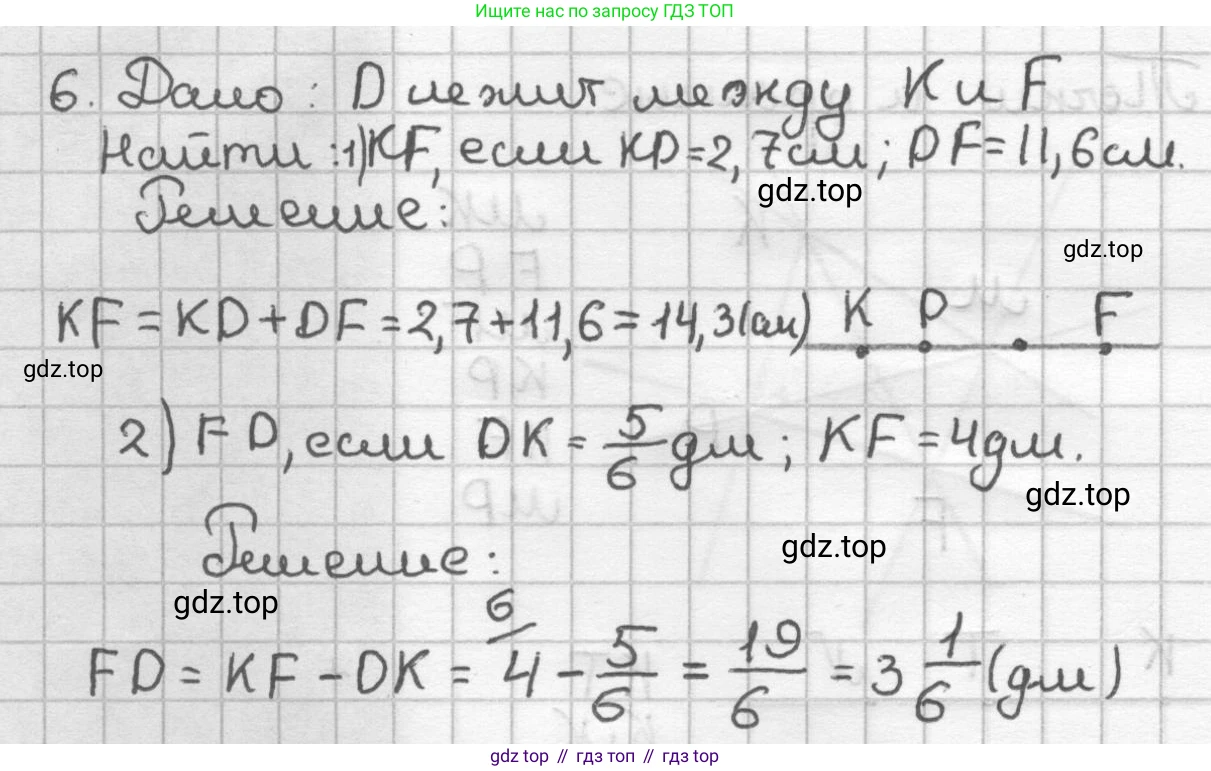 Ищите нас по запросу ГДЗ ТОП
6. Дано: D лежит между K и F
Найти: 1) KF, если KD=2,7см; DF=11,6см.
gdz.top
Решение:
gdz.top
KF = KD + DF = 2,7 + 11,6 = 14,3 (см)
K D F
gdz.top
2) FD, если DK = 5/6 дм; KF = 4дм.
gdz.top
Решение:
gdz.top
gdz.top
FD = KF - DK = 6/ 4 - 5/6 = 19/6 = 3 1/6 (дм)
gdz top // гдз топ // gdz top